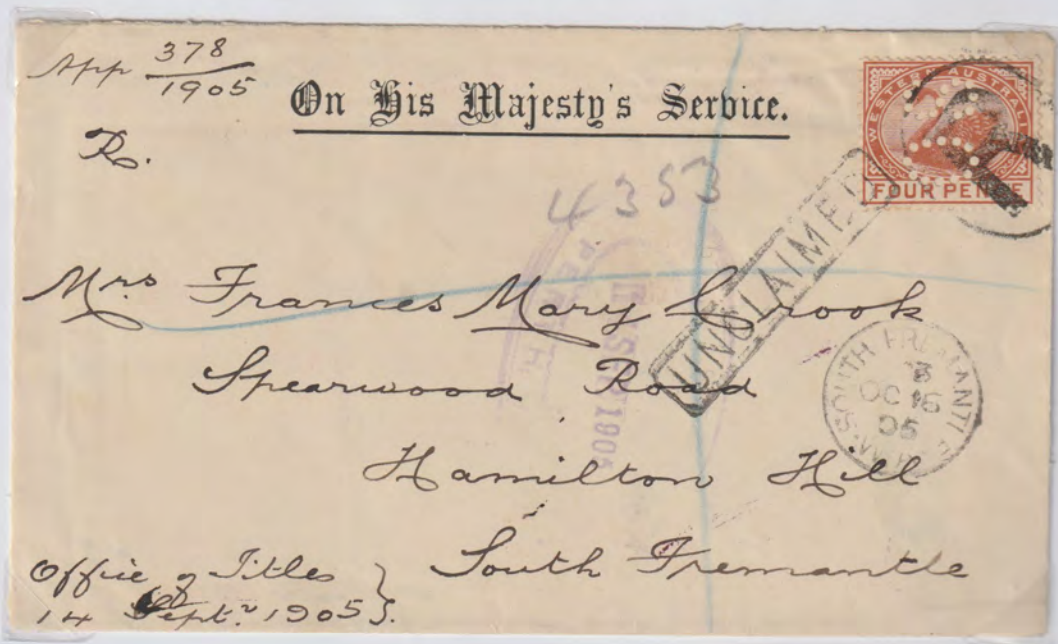 App 378/1905
On His Majesty's Service.
R.
WESTERN AUSTRALIA
FOUR PENCE
4353
PERTH
SEP 1905
UNCLAIMED
Mrs Frances Mary Crook
Spearwood Road
Hamilton Hill
South Fremantle
SOUTH FREMANTLE
OC 16
05
Office of Titles
14 Sept. 1905